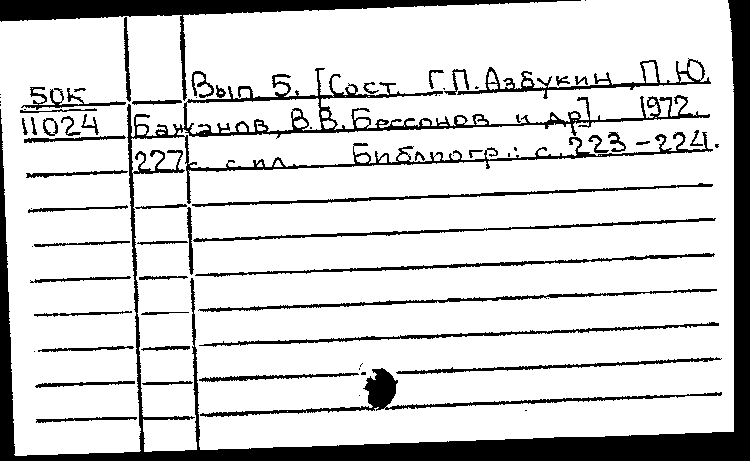 50К Вып 5. [Сост. Г.П. Азбукин, П.Ю.
11024 Бажанов, В.В. Бессонов и др]. 1972.
227с. с ил. Библиогр.: с. 223-224.